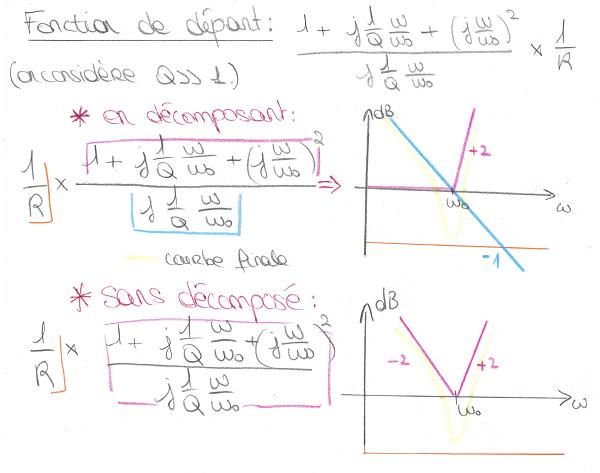 Fonction de départ: (1 + j 1/Q ω/ω₀ + (j ω/ω₀)²) / (j 1/Q ω/ω₀) × 1/R
(on considère Q>>1.)
* en décomposant:
1/R × (1 + j 1/Q ω/ω₀ + (j ω/ω₀)²) / (j 1/Q ω/ω₀) ⇒
dB
+2
ω₀
ω
-1
courbe finale
* sans décomposé:
1/R × (1 + j 1/Q ω/ω₀ + (j ω/ω₀)²) / (j 1/Q ω/ω₀)
dB
-2
+2
ω₀
ω